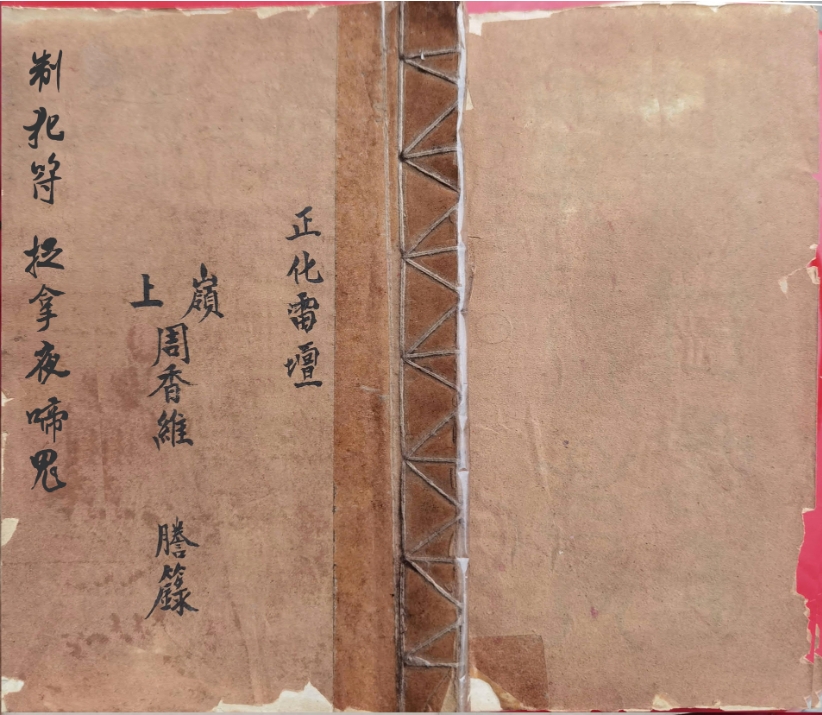 正化雷壇
嶺上周香維 謄籙
制犯符 捉拿夜啼鬼